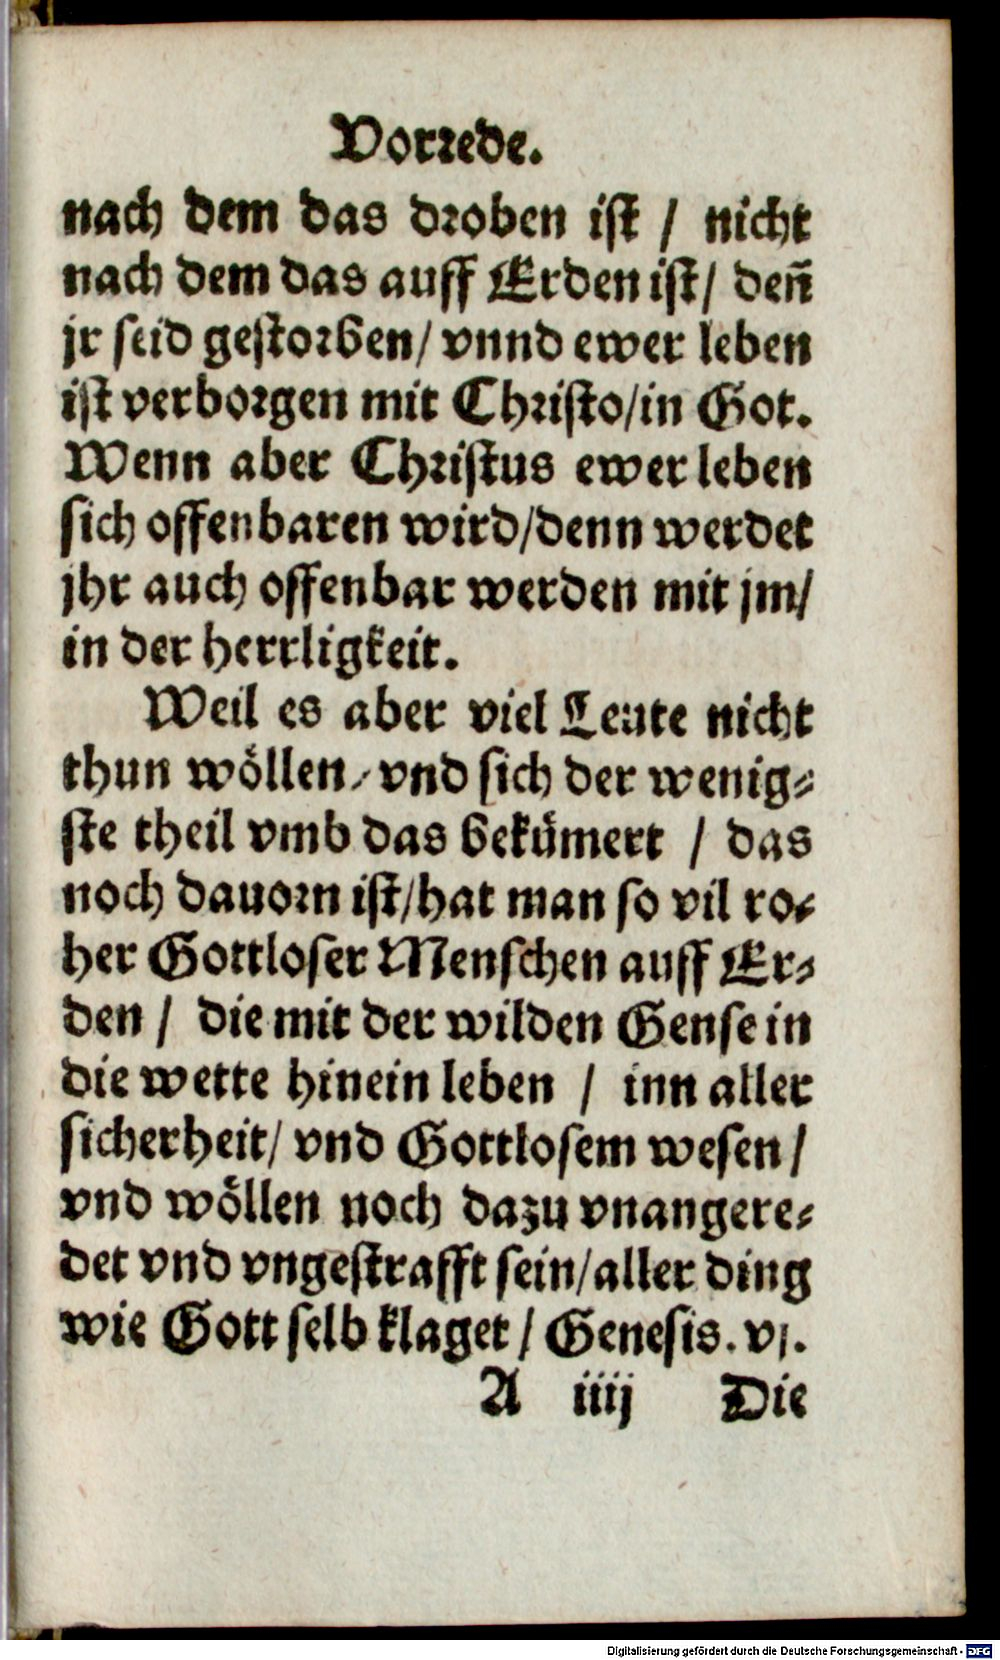 Vorrede.
nach dem das droben ist / nicht
nach dem das auff Erden ist / den̄
jr seid gestorben / vnnd ewer leben
ist verborgen mit Christo / in Got.
Wenn aber Christus ewer leben
sich offenbaren wird / denn werdet
jhr auch offenbar werden mit jm /
in der herrligkeit.
Weil es aber viel Leute nicht
thun wöllen / vnd sich der wenig⸗
ste theil vmb das bekümert / das
noch dauorn ist / hat man so vil ro⸗
her Gottloser Menschen auff Er⸗
den / die mit der wilden Gense in
die wette hinein leben / inn aller
sicherheit / vnd Gottlosem wesen /
vnd wöllen noch dazu vnangere⸗
det vnd vngestrafft sein / aller ding
wie Gott selb klaget / Genesis. vj.
A iiij Die
Digitalisierung gefördert durch die Deutsche Forschungsgemeinschaft - DFG